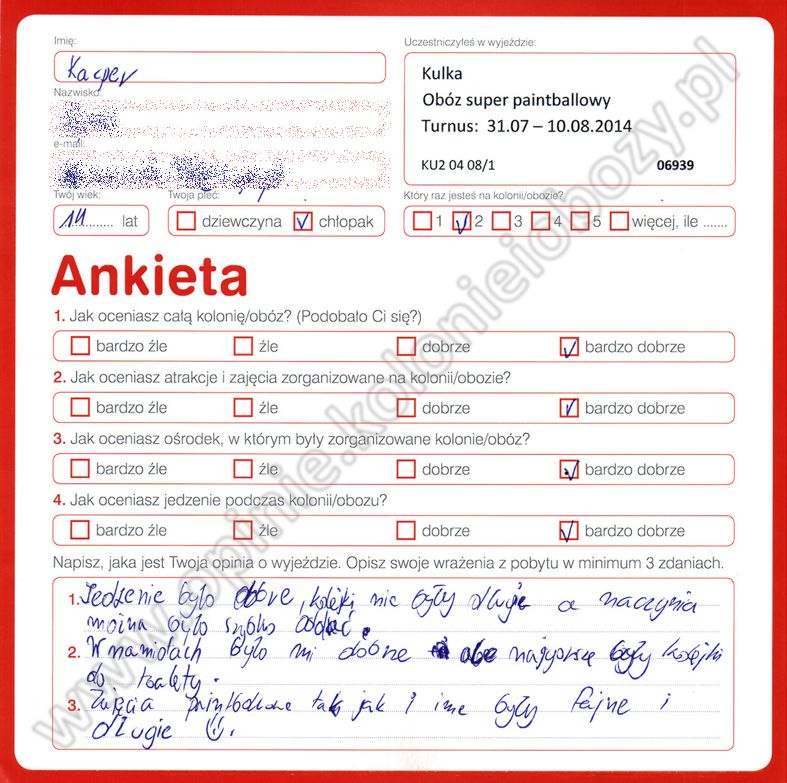 Imię:
Kacper
Nazwisko:
e-mail:
Twój wiek:
Twoja płeć:
14 lat
dziewczyna
chłopak
Uczestniczyłeś w wyjeździe:
Kulka
Obóz super paintballowy
Turnus: 31.07 – 10.08.2014
KU2 04 08/1 06939
Który raz jesteś na kolonii/obozie?
1 2 3 4 5 więcej, ile .......
Ankieta
1. Jak oceniasz całą kolonię/obóz? (Podobało Ci się?)
bardzo źle źle dobrze bardzo dobrze
2. Jak oceniasz atrakcje i zajęcia zorganizowane na kolonii/obozie?
bardzo źle źle dobrze bardzo dobrze
3. Jak oceniasz ośrodek, w którym były zorganizowane kolonie/obóz?
bardzo źle źle dobrze bardzo dobrze
4. Jak oceniasz jedzenie podczas kolonii/obozu?
bardzo źle źle dobrze bardzo dobrze
Napisz, jaka jest Twoja opinia o wyjeździe. Opisz swoje wrażenia z pobytu w minimum 3 zdaniach.
1. Jedzenie było dobre, kolejki nie były długie a naczynia
można było szybko oddać.
2. W namiotach było mi dobrze ale najgorsze były kolejki
do toalety.
3. Zajęcia paintballowe tak jak i inne były fajne i
długie
www.opinie.kolonieiobozy.pl